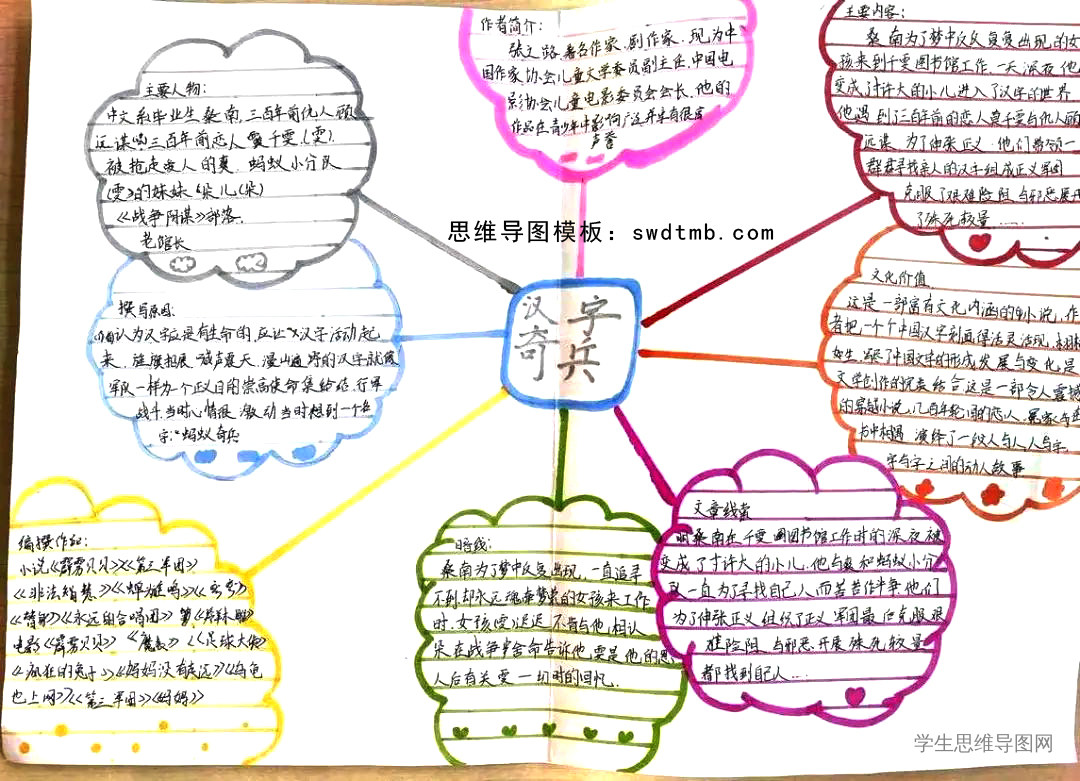 作者简介：
张之路，著名作家、剧作家，现为中
国作家协会儿童文学委员副主任，中国电
影协会儿童电影委员会会长，他的
作品在青少年中影响广泛并享有很高
声誉
主要内容：
桑南为了梦中反反复复出现的女
孩来到千雯图书馆工作，一天深夜他
变成寸许大的小儿进入了汉字的世界
他遇到了三百年前的恋人
远谋，为了伸张正义，他们带领一
群群寻找亲人的汉字组成正义军团
克服了艰难险阻，与邪恶展开
了殊死较量……
主要人物：
中文系毕业生桑南，三百年前仇人顾
远谋 三百年前恋人 千雯(雯)，
被抢走家人的 蚂蚁小分队
(雯)的妹妹 朵儿(朵)
《战争阴谋》部落，
老馆长
思维导图模板：swdtmb.com
汉字
奇兵
撰写原因：
认为汉字应是有生命的，应让汉字活动起
来， 喊声震天，漫山遍野的汉字就像
军队一样为一个正义目的崇高使命集给结，行军
战斗，当时心情很激动当时想到一个名
字："蚂蚁奇兵
文化价值
这是一部富有文化内涵的小说，作
者把一个个中国汉字刻画得活灵活现，栩栩
如生， 了中国文字的形成发展与变化是
文学创作的完美结合这是一部令人震撼
的 小说，几百年轮回的恋人，冤家
书中相遇 演绎了一段人与人，人与字，
字与字之间的动人故事
编撰作品：
小说《霹雳贝贝》《第三军团》
《非法智慧》《蝉为谁鸣》
《替身》《永远的合唱团》
电影《霹雳贝贝》《魔表》《足球大侠》
《疯狂的兔子》《妈妈没有走远》《乌龟
也上网》《第三军团》《妈妈》
暗线：
桑南为了梦中反复出现，一直追寻
不到却永远魂牵梦萦的女孩来工作
时，女孩(雯)迟迟不肯与他相认
朵在战争牢舍命告诉他雯是他的恩
人后有关雯一切时的回忆.
文章线索
桑南在千雯图书馆工作时的深夜被
变成了寸许大的小儿，他与 和蚂蚁小分
队一直为了寻找自己人，而苦苦作斗争他们
为了伸张正义组织了正义军团最后克服艰
难险阻，与邪恶开展殊死较量
都找到自己人…
学生思维导图网